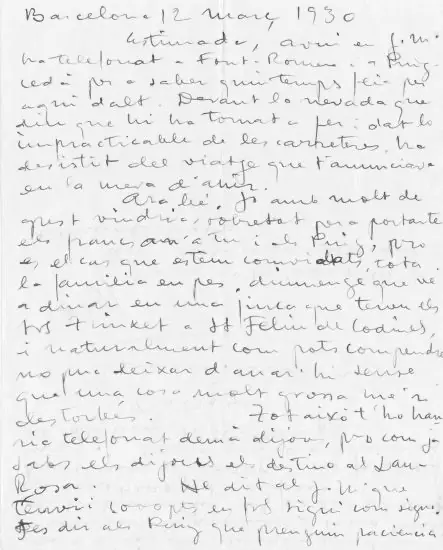 Barcelona 12 març 1930
Estimada, avui en J.M.
ha telefonat a Font-Romeu i a Puig-
cedà per a saber quin temps feia per
aquí dalt. Devant la nevada que
diu que hi ha tornat a fer i dat lo
impracticable de les carreteres, ha
desistit del viatge que t'anunciava
en la meva d'ahir.
Ara bé, jo amb molt de
gust vindria, sobretot per a portarte
els francs a tu i als Puig, pro
es el cas que estem convidats, tota
la familia en pes, diumenge que ve
a dinar en una finca que tenen els
Trinxet a St Feliu de Codines,
i naturalment com pots compendre
no puc deixar d'anar-hi sense
que una cosa molt grossa me'n
destorbés. Tot aixó t'ho hau-
ria telefonat demà dijous, pro com ja
sabs els dijous els destino al
Rosa. He dit al J.M. que
t'envii 1000 pts en sigui com sigui.
Fes dir als Puig que prenguin paciencia